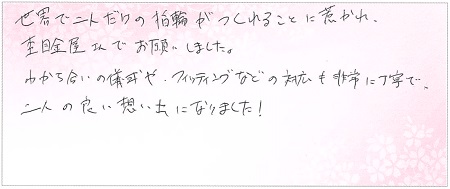 世界で二人だけの指輪がつくれることに惹かれ、
杢目金屋さんでお願いしました。
わかち合いの儀式や、フィッティングなどの対応も非常に丁寧で、
二人の良い想い出になりました！